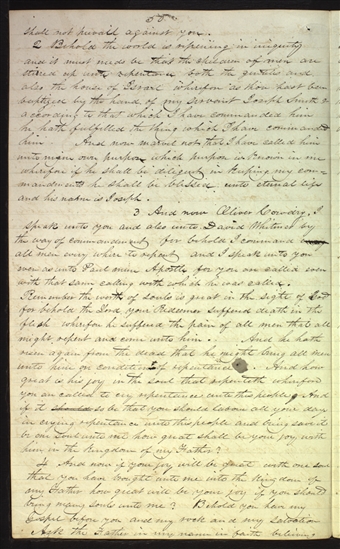 shall not prevail against you
2 Behold the world is ripening in iniquity
and it must needs be that the children of men are
stired up unto repentance both the gentiles and
also the house of Israel wherefore as thou hast been
baptized by the hand of my servant Joseph Smith
according to that which I have commanded him
he hath fulfilled the thing which I have commanded
him And now marvel not that I have called him
unto mine own purpose which purpose is known in me
wherefore if he shall be diligent in keeping my com
mandments he shall be blessed unto eternal life
and his name is Joseph
3 And now Oliver Cowdry, I
speak unto you and also unto David Whitmer by
the way of commandment for behold I command
all men every where to repent and I speak unto you
even as unto Paul mine Apostle for you are called even
with that same calling with which he was called.
Remember the worth of souls is great in the sight of God
for behold the Lord your Redeemer suffered death in the
flesh wherefore he suffered the pain of all men that all
might repent and come unto him. And he hath
risen again from the dead that he might bring all men
unto him on conditions of repentance And how
great is his joy in the soul that repenteth wherefore
you are called to cry repentance unto this people, And
if it should so be that you should labour all your days
in crying repentance unto this people and bring save it
be one soul unto me how great shall be your joy with
him in the Kingdom of my Father?
4 And now if your joy will be great with one soul
that you have brought unto me into the Kingdom of
my Father how great will be your joy if you should
bring many souls unto me? Behold you have my
Gospel before you and my rock and my salvation
Ask the Father in my name in faith believing